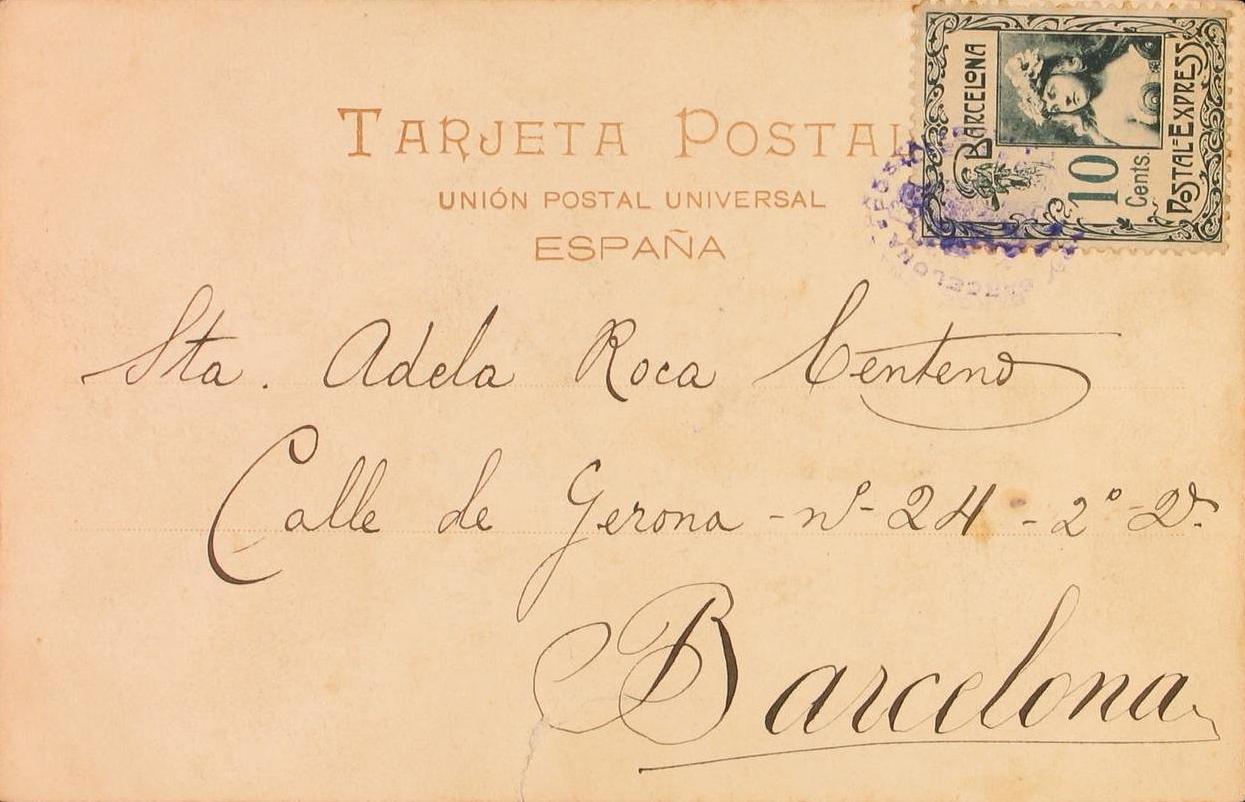 TARJETA POSTAL
UNIÓN POSTAL UNIVERSAL
ESPAÑA
BARCELONA
POSTAL-EXPRESS
10
Cents.
BARCELONA
Sta. Adela Roca Centeno
Calle de Gerona - nº - 24 - 2º - 2ª.
Barcelona